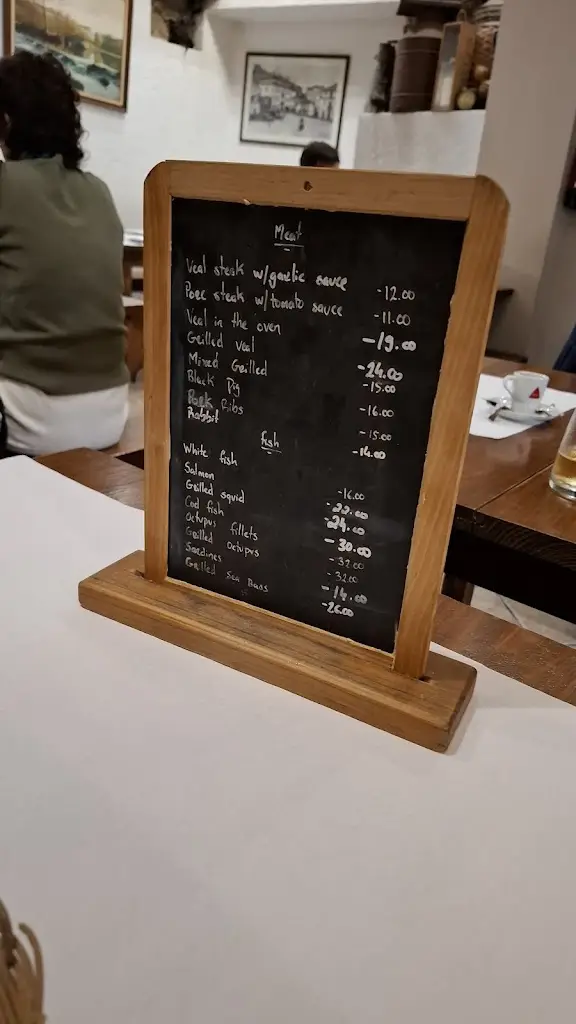 Meat
Veal steak w/garlic sauce -12.00
Porc steak w/tomato sauce -11.00
Veal in the oven -19.00
Grilled veal -24.00
Mixed Grilled -15.00
Black Pig -16.00
Pork Ribs -15.00
Rabbit -14.00
fish
White fish -16.00
Salmon -22.00
Grilled squid -24.00
Cod fish -30.00
Octupus fillets -32.00
Grilled Octupus -32.00
Sardines -14.00
Grilled Sea Bass -26.00